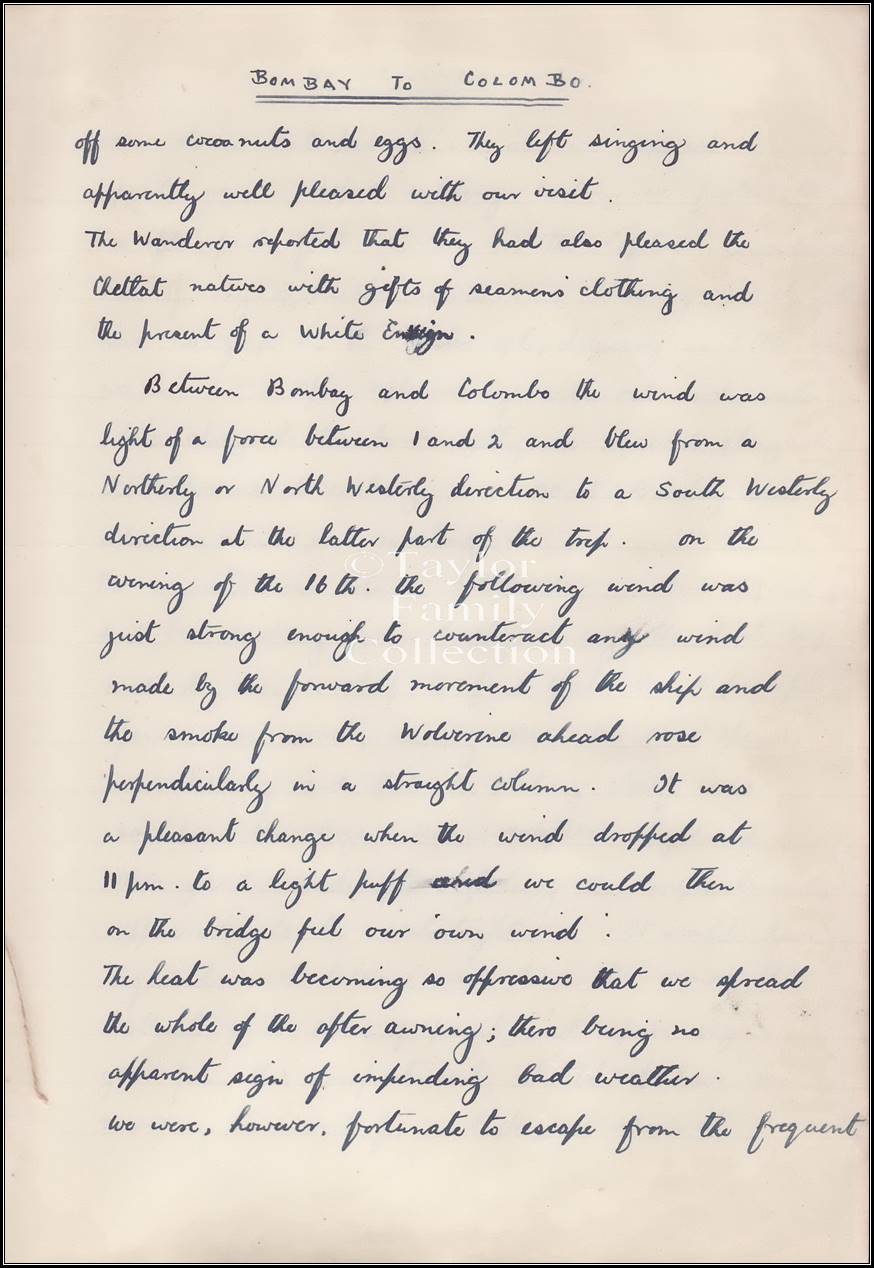 BOMBAY TO COLOMBO.
off some cocoanuts and eggs. They left singing and
apparently well pleased with our visit.
The Wanderer reported that they had also pleased the
Chetlat natives with gifts of seamens' clothing and
the present of a White Ensign.
Between Bombay and Colombo the wind was
light of a force between 1 and 2 and blew from a
Northerly or North Westerly direction to a South Westerly
direction at the latter part of the trip. On the
evening of the 16th. the following wind was
just strong enough to counteract any wind
made by the forward movement of the ship and
the smoke from the Wolverine ahead rose
perpendicularly in a straight column. It was
a pleasant change when the wind dropped at
11 pm. to a light puff and we could then
on the bridge feel our 'own wind'.
The heat was becoming so oppressive that we spread
the whole of the after awning; there being no
apparent sign of impending bad weather.
We were, however, fortunate to escape from the frequent
©Taylor
Family
Collection